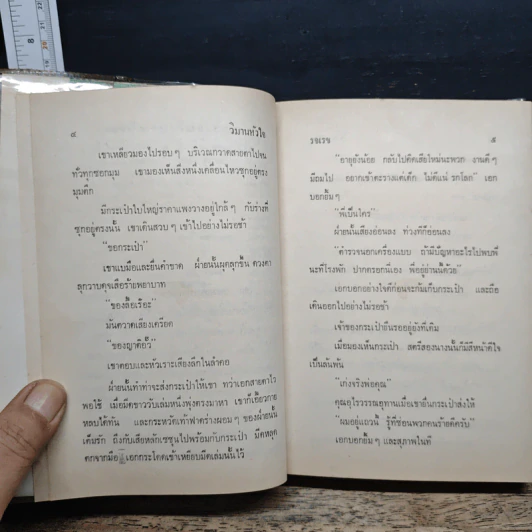 ๔ วิมานหัวใจ
เขาเหลียวมองไปรอบๆ บริเวณกวาดสายตาไปจน
ทั่วทุกซอกมุม เขามองเห็นสิ่งหนึ่งเคลื่อนไหวซุกอยู่ตรง
มุมตึก
มีกระเป๋าใบใหญ่ราคาแพงวางอยู่ใกล้ๆ กับร่างที่
ซุกอยู่ตรงนั้น เขาเดินสวบๆ เข้าไปอย่างไม่รอช้า
"ขอกระเป๋า"
เขาแบมือและยื่นคำขาด ฝ่ายนั้นผุดลุกขึ้น ดวงตา
ลุกวาบดุจเสือร้ายพยาบาท
"ของลื้อเรอะ"
มันตวาดเสียงเครียด
"ของญาติอั๊ว"
เขาตอบและหัวเราะเสียงลึกในลำคอ
ฝ่ายนั้นทำท่าจะส่งกระเป๋าให้เขา ทว่าเอกสายตาไว
พอใช้ เมื่อมีดขาววับเล่มหนึ่งพุ่งตรงมาหา เขาก็เอี้ยวกาย
หลบได้ทัน และกระหวัดเท้าฟาดร่างผอมๆ ของฝ่ายนั้น
เต็มรัก ถึงกับเสียหลักเซซุนไปพร้อมกับกระเป๋า มีดหลุด
ตกจากมือ เอกกระโดดเข้าเหยียบมีดเล่มนั้นไว้
รอเรจ ๕
"อายุยังน้อย กลับไปคิดเสียใหม่นะพวก งานดีๆ
มีถมไป อยากเข้าตะรางแต่เด็ก ไม่ดีแน่ รกโลก" เอก
บอกยิ้มๆ
"พี่เป็นใคร"
ฝ่ายนั้นเสียงอ่อนลง ท่วงทีก็อ่อนลง
"ตำรวจนอกเครื่องแบบ ถ้ามีปัญหาอะไรไปพบพี่
นะที่โรงพัก ปากตรอกนี่เอง พี่อยู่ย่านนี้ด้วย"
เอกบอกอย่างใจดีก่อนจะก้มเก็บกระเป๋า และถือ
เดินออกไปอย่างไม่รอช้า
เจ้าของกระเป๋ายืนรออยู่ยังที่เดิม
เมื่อมองเห็นกระเป๋า สตรีสองนางนั้นก็มีสีหน้าดีใจ
เป็นล้นพ้น
"เก่งจริงพ่อคุณ"
คุณอุไรวรรณอุทานเมื่อเขายื่นกระเป๋าส่งให้
"ผมอยู่แถวนี้ รู้ที่ซ่อนพวกคนร้ายดีครับ"
เอกบอกยิ้มๆ และสุภาพในที